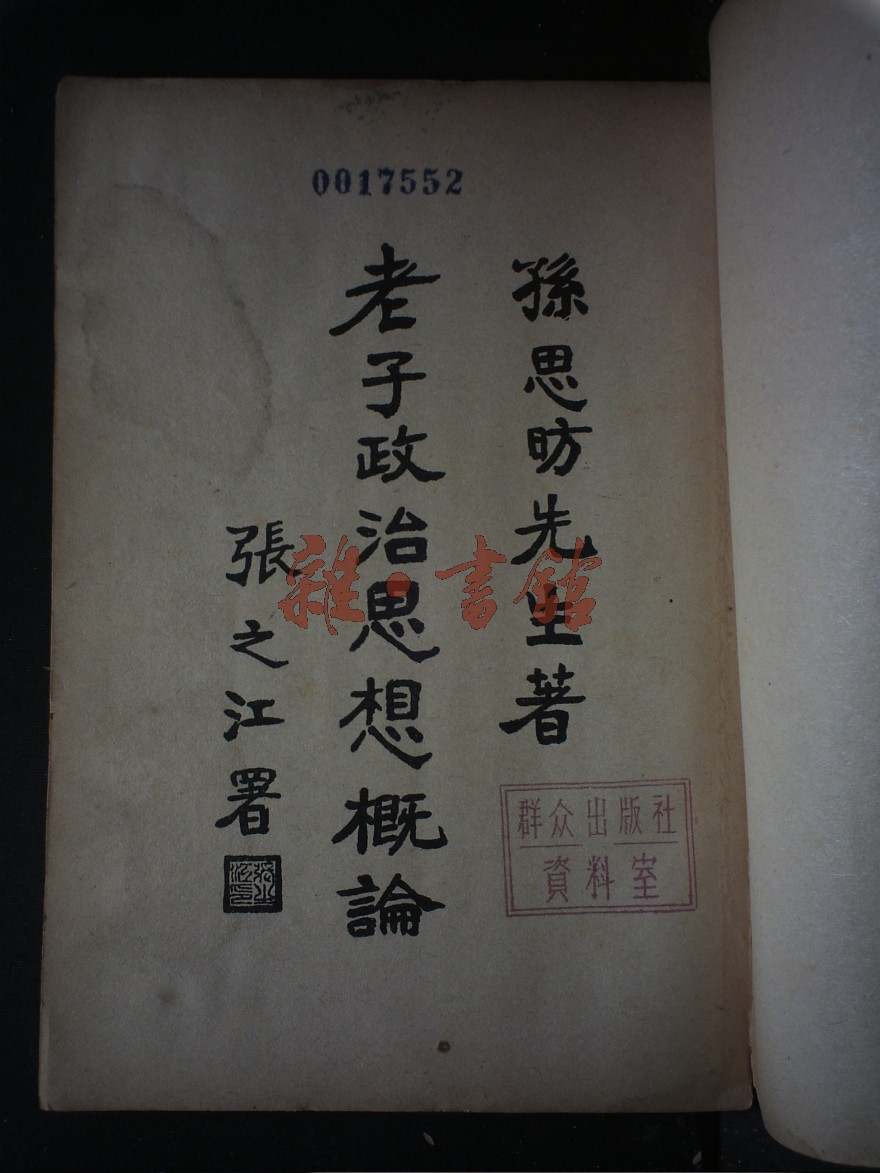 0017552
孫思昉先生著
老子政治思想概論
張之江署
群众出版社
資料室
雜·書館